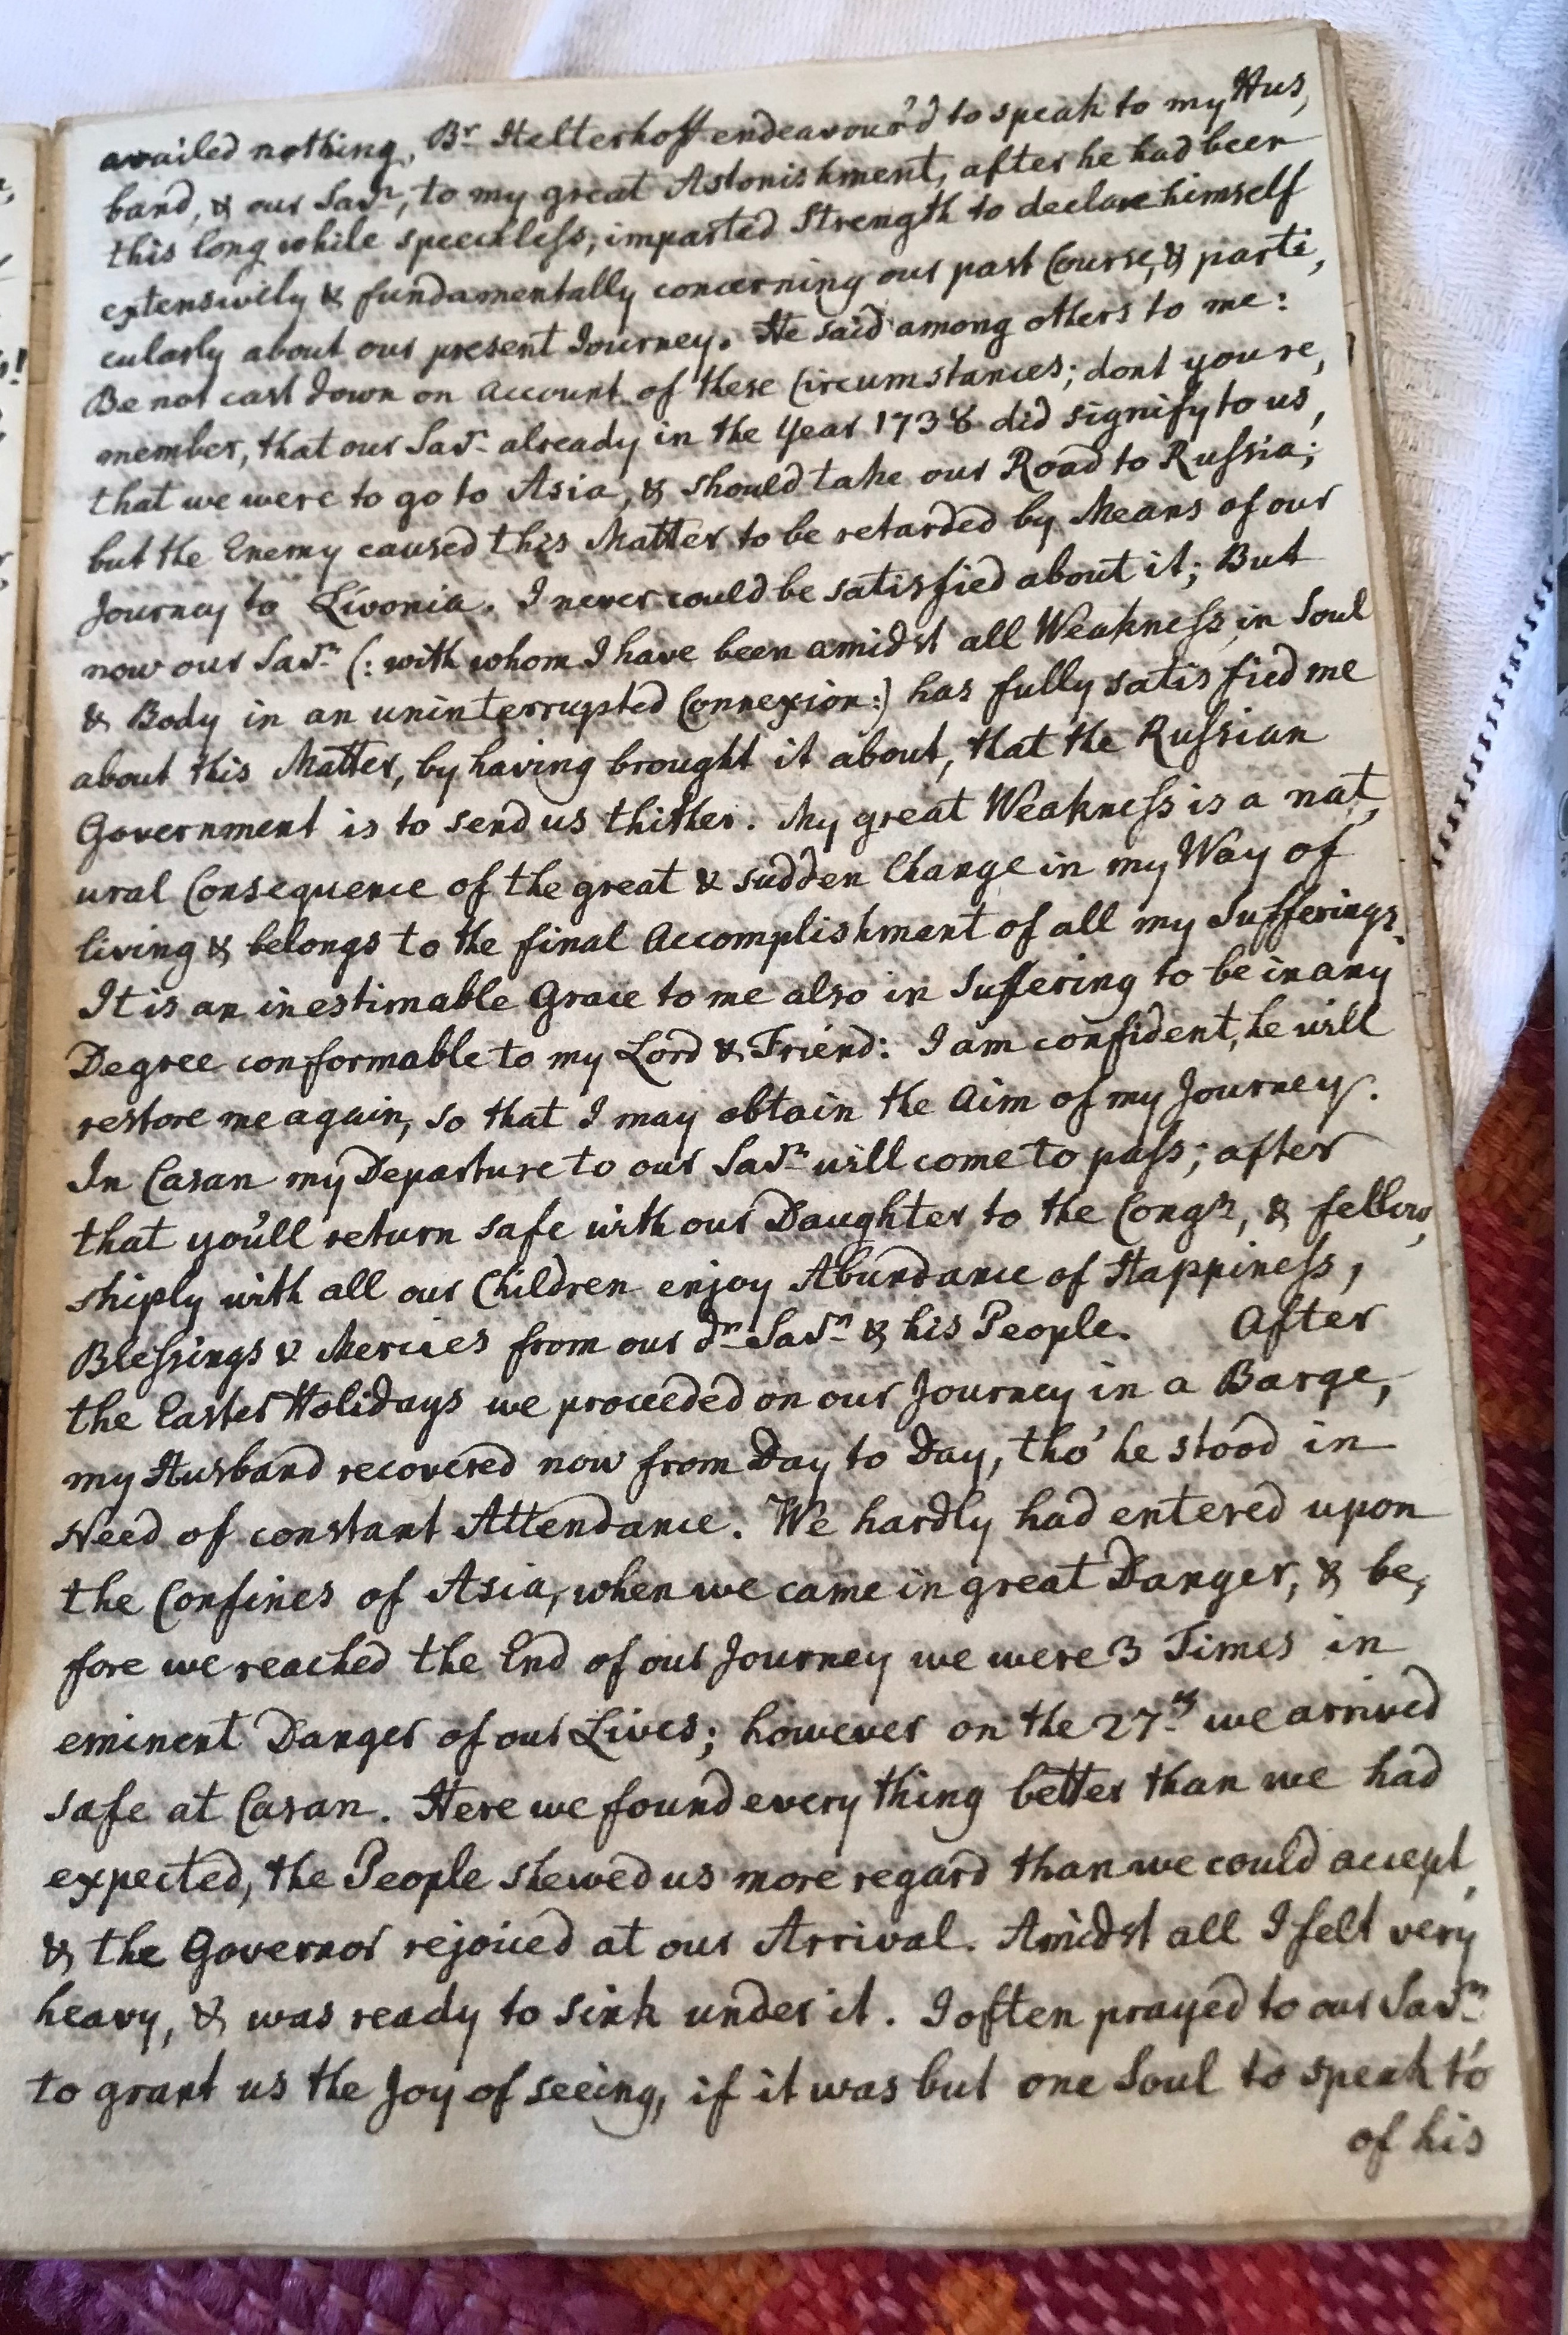 availed nothing, Br Helterhoff endeavour'd to speak to my Hus,
band, & our Savr, to my great Astonishment, after he had been
this long while speechless, imparted Strength to declare himself
extensively & fundamentally concerning our past Course, & parti,
cularly about our present Journey. He said among others to me:
Be not cast down on Account of these Circumstances; dont you re,
member, that our Savr already in the Year 1738 did signify to us,
that we were to go to Asia, & should take our Road to Russia;
but the Enemy caused this Matter to be retarded by Means of our
Journey to Livonia. I never could be satisfied about it; But
now our Savr (: with whom I have been amidst all Weakness in Soul
& Body in an uninterrupted Connexion:) has fully satisfied me
about this Matter, by having brought it about, that the Russian
Government is to send us thither. My great Weakness is a nat,
ural Consequence of the great & sudden Change in my Way of
living & belongs to the final Accomplishment of all my Sufferings.
It is an inestimable Grace to me also in Suffering to be in any
Degree conformable to my Lord & Friend: I am confident, he will
restore me again, so that I may obtain the Aim of my Journey.
In Casan my Departure to our Savr will come to pass; after
that you'll return safe with our Daughter to the Congn, & fellow,
shiply with all our Children enjoy Abundance of Happiness,
Blessings & Mercies from our dr Savr & his People. After
the Easter Holidays we proceeded on our Journey in a Barge,
my Husband recovered now from Day to Day, tho' he stood in
Need of constant Attendance. We hardly had entered upon
the Confines of Asia, when we came in great Danger, & be,
fore we reached the End of our Journey we were 3 Times in
eminent Danger of our Lives; however on the 27th we arrived
safe at Casan. Here we found every thing better than we had
expected, the People shewed us more regard than we could accept,
& the Governor rejoiced at our Arrival. Amidst all I felt very
heavy, & was ready to sink under it. I often prayed to our Savr
to grant us the Joy of seeing, if it was but one Soul to speak to
of his